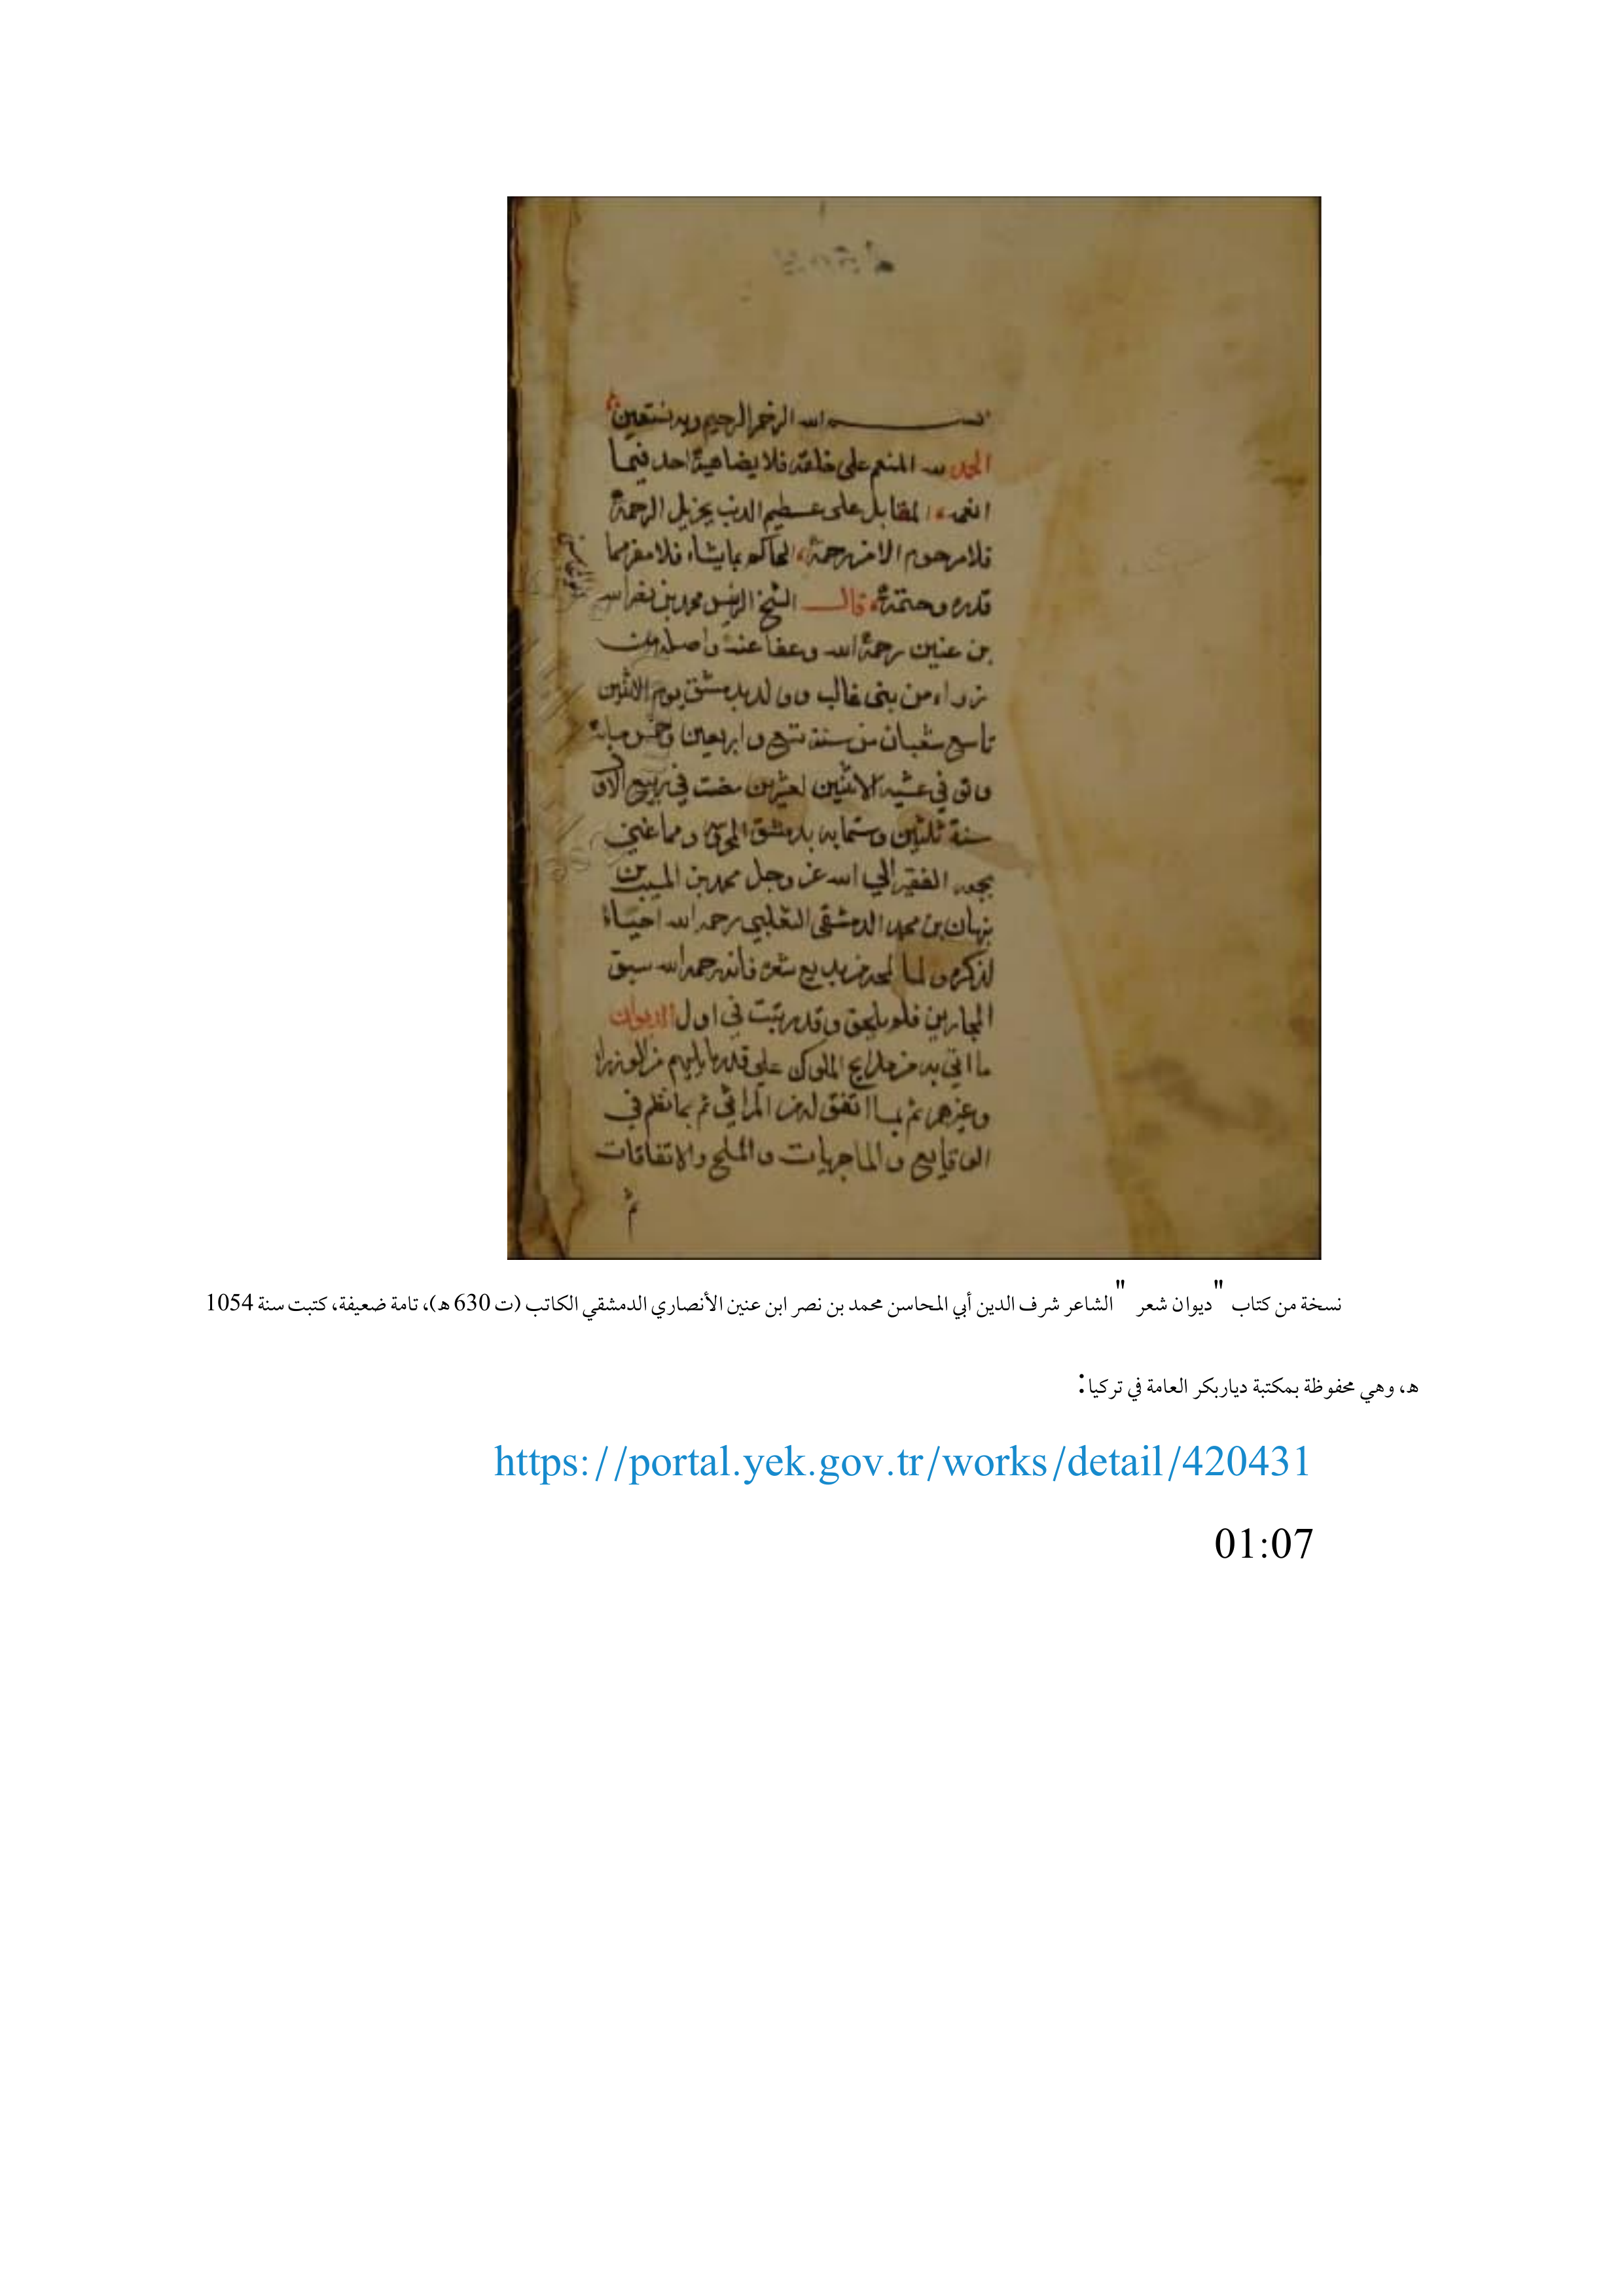 بسم الله الرحمن الرحيم وبه نستعين
الحمد لله المنعم على خلقه فلا يضاهيه احد فيما
انعمه المقابل على عظيم الذنب بجزيل الرحمة
فلا مرحوم الا من رحمه الحاكم بما يشاء فلا مفر مما
قدره وحتمه قال الشيخ الرئيس محمد بن نصر الله
بن عنين رحمه الله وعفا عنه واصله من
زراء من بنى غالب وولد بدمشق يوم الاثنين
تاسع شعبان من سنة تسع واربعين وخمس مايه
وتوفي عشية الاثنين لعشرين مضت في ربيع الاول
سنة ثلثين وستمايه بدمشق ومما عني
بجمعه الفقير الى الله عز وجل محمد بن المسيب بن
نبهان بن محمد الدمشقى التغلبي رحمه الله احياء
لذكره ولما من بديع شعره فانه رحمه الله سبق
المجارين فلم يلحق وقد رتبت في اول الديوان
ما اتي به من مدايح الملوك على قدر ما يليهم من الوزراء
وغيرهم ثم بما اتفق له من المراثي ثم بما نظم في
الوقايع والماجريات والملح والاتفاقات
ثم
نسخة من كتاب "ديوان شعر" الشاعر شرف الدين أبي المحاسن محمد بن نصر ابن عنين الأنصاري الدمشقي الكاتب (ت 630 هـ)، تامة ضعيفة، كتبت سنة 1054
هـ، وهي محفوظة بمكتبة ديار بكر العامة في تركيا:
https://portal.yek.gov.tr/works/detail/420431
01:07